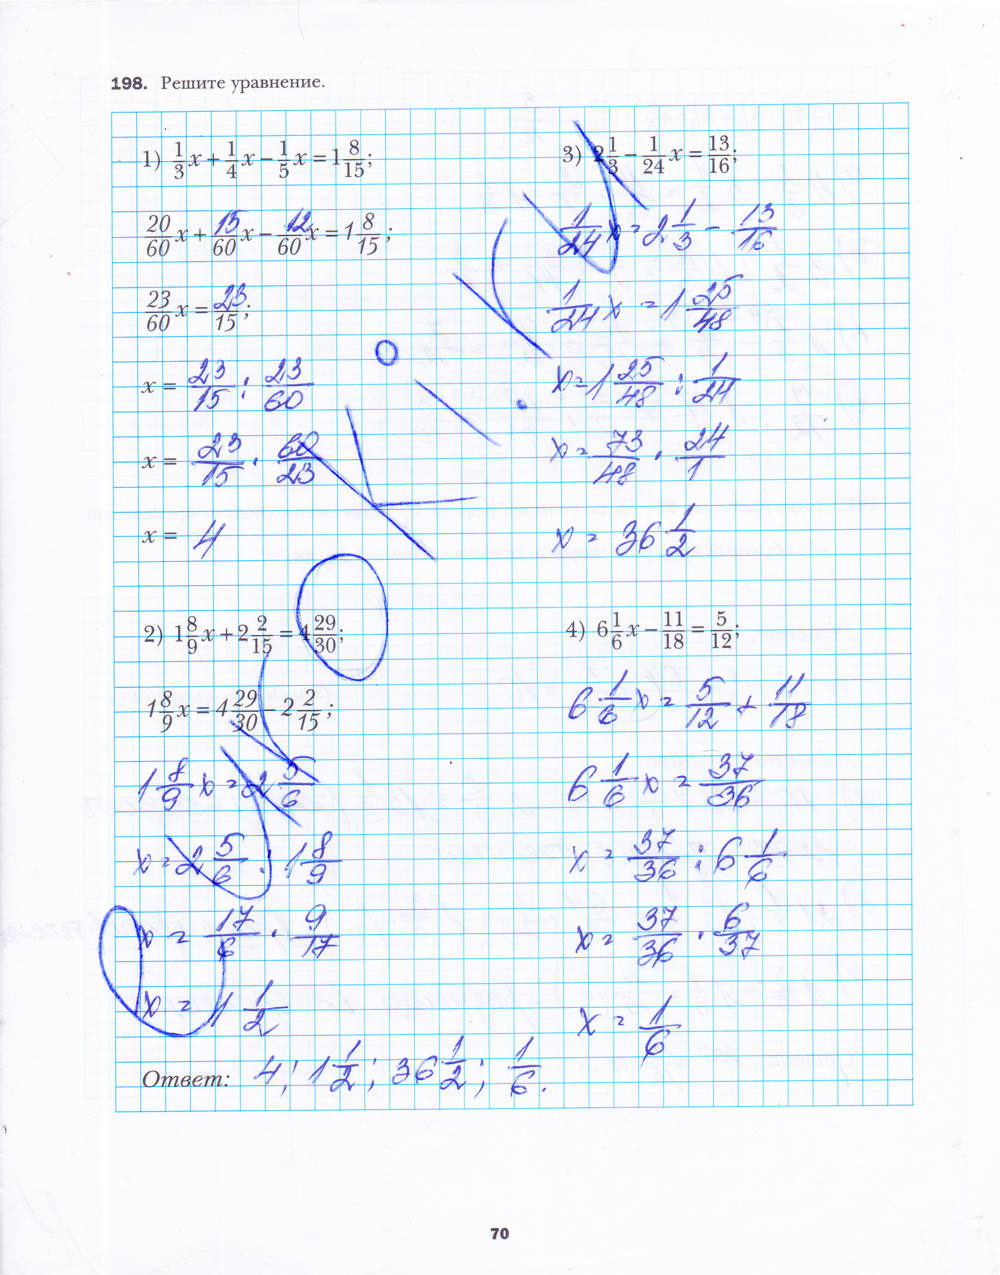 198. Решите уравнение.
1) 1/3 x + 1/4 x − 1/5 x = 1 8/15;
20/60 x + 15/60 x − 12/60 x = 1 8/15;
23/60 x = 23/15;
x = 23/15 : 23/60
x = 23/15 · 60/23
x = 4
2) 1 8/9 x + 2 2/15 = 4 29/30;
1 8/9 x = 4 29/30 − 2 2/15;
1 8/9 x = 2 5/6
x = 2 5/6 : 1 8/9
x = 17/6 · 9/17
x = 1 1/2
3) 2 1/3 − 1/24 x = 13/16;
1/24 x = 2 1/3 − 13/16
1/24 x = 1 25/48
x = 1 25/48 : 1/24
x = 73/48 · 24/1
x = 36 1/2
4) 6 1/6 x − 11/18 = 5/12;
6 1/6 x = 5/12 + 11/18
6 1/6 x = 37/36
x = 37/36 : 6 1/6
x = 37/36 · 6/37
x = 1/6
Ответ: 4; 1 1/2; 36 1/2; 1/6.
70